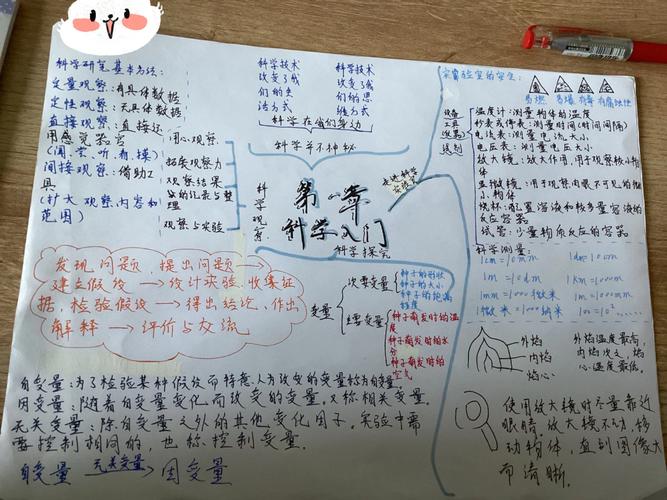 科学研究基本方法:
定量观察:有具体数据
定性观察:无具体数据
直接观察:直接运
用感觉器官
(闻、尝、听、看、摸)
间接观察:借助工
具
(扩大观察内容和
范围)
用心观察
拓展观察力
观察结果
的记录与整
理
观察与实验
科学观察
科学技术
改变了我
们的生
活方式
科学技术
改变了我
们的思
维方式
科学在我们身边
科学并不神秘
第一章
科学入门
科学探究
发现问题,提出问题→
建立假设→设计实验,收集证
据,检验假设→得出结论,作出
解释→评价与交流
变量
次要变量
种子的形状
种子的大小
种子的距离
程度
主要变量
种子萌发时的温
度
种子萌发时的水
分
种子萌发时的
空气
自变量:为了检验某种假设而特意、人为改变的变量称为自变量。
因变量:随着自变量变化而改变的变量。又称相关变量。
无关变量:除自变量之外的其他变化因子,实验中需
要控制相同的,也称控制变量。
自变量 无关变量→ 因变量
实验室的安全:
易燃 易爆 有毒 有腐蚀性
温度计:测量物体的温度
秒表或停表:测量时间(时间间隔)
电流表:测量电流大小
电压表:测量电压大小
放大镜:放大作用,用于观察较小物
体
显微镜:用于观察肉眼不可见的微
小物体
烧杯:配置溶液和较多量溶液的
反应容器
试管:少量物质反应的容器
科学测量:
1cm=10mm
1dm=10cm
1m=10dm
1km=1000m
1mm=1000微米
1m=1000mm
1微米=1000纳米
外焰
内焰
焰心
外焰温度最高,
内焰次之,焰
心温度最低。
使用放大镜时尽量靠近
眼睛,放大镜不动,移
动物体,直到图像大
而清晰.